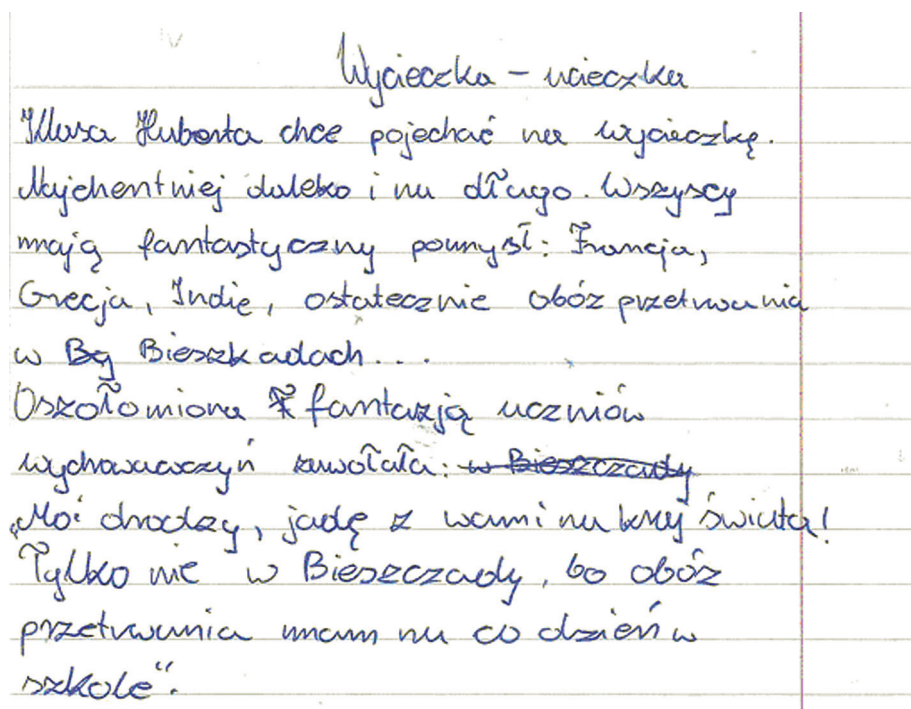 Wycieczka – ucieczka
Klasa Huberta chce pojechać na wycieczkę.
Najchentniej daleko i na długo. Wszyscy
mają fantastyczny pomysł: Francja,
Grecja, Indie, ostatecznie obóz przetrwania
w Bieszkadach...
Oszołomiona fantazją uczniów
wychowawczyń zawołała: w Bieszczady
„Moi drodzy, jadę z wami na kraj świata!
Tylko nie w Bieszczady, bo obóz
przetrwania mam na co dzień w
szkole".